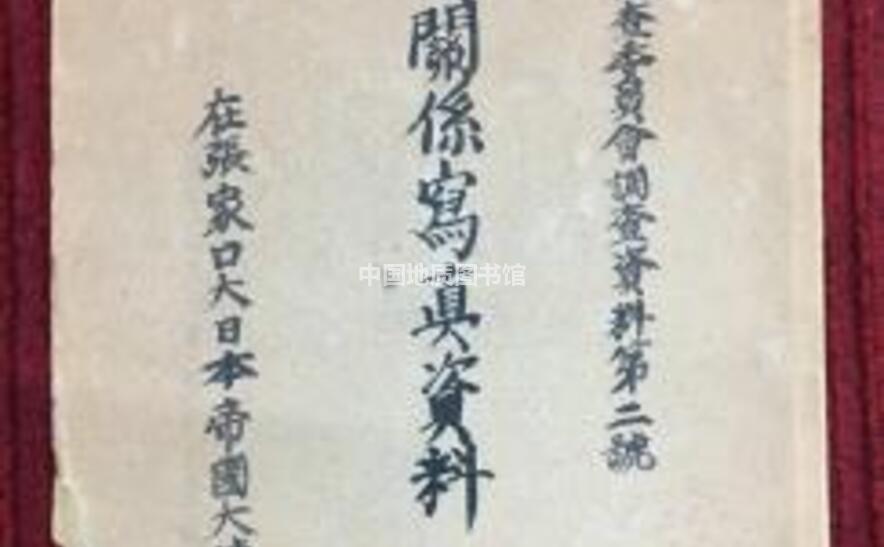 查委員會調查資料第二號
關係寫眞資料
在張家口大日本帝國大
中国地质图书馆